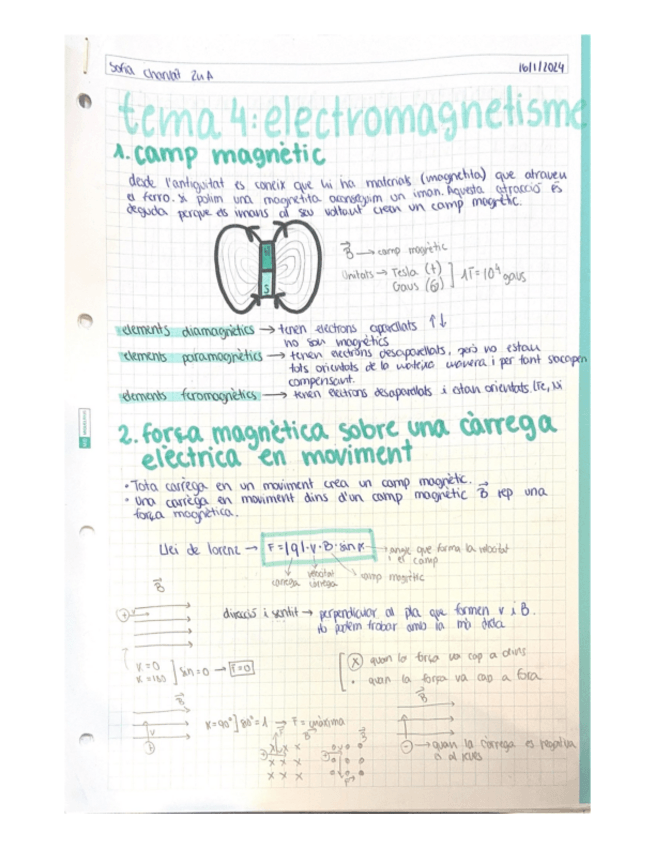 Sofia Chantal 2n A
16/1/2024
tema 4: electromagnetisme
1. camp magnètic
desde l'antiguitat es coneix que hi ha materials (magnetita) que atraven
el ferro. Si polim una magnetita aconseguim un iman. Aquesta atracció és
deguda perque els imans al seu voltant crean un camp magnètic.
N
S
B → camp magnètic
Unitats → Tesla (t)
Gaus (G)
1T = 10⁴ gaus
elements diamagnètics → tenen electrons aparellats ↑↓
no son magnètics
elements paramagnètics → tenen electrons desaparellats, però no estan
tots orientats de la mateixa manera i per tant s'acaben
compensant.
elements feromagnètics → tenen electrons desaparellats i estan orientats. (Fe, Ni
2. força magnètica sobre una càrrega
elèctrica en moviment
• Tota carrèga en un moviment crea un camp magnètic.
• Una carrèga en moviment dins d'un camp magnètic B rep una
força magnètica.
Llei de lorenz → F = |q| · v · B · sin α
→ angle que forma la velocitat
i el camp
carrega
velocitat
carrega
camp magnètic
B
+
direcció i sentit → perpendicular al pla que formen v i B.
ho podem trobar amb la mà dreta
α = 0
α = 180
sin = 0 → F = 0
x quan la força va cap a dins
• quan la força va cap a fora
B
v
+
α = 90°
→ F = màxima
F
B
x x x
x x x
B
F
B
-
→ quan la càrrega es negativa